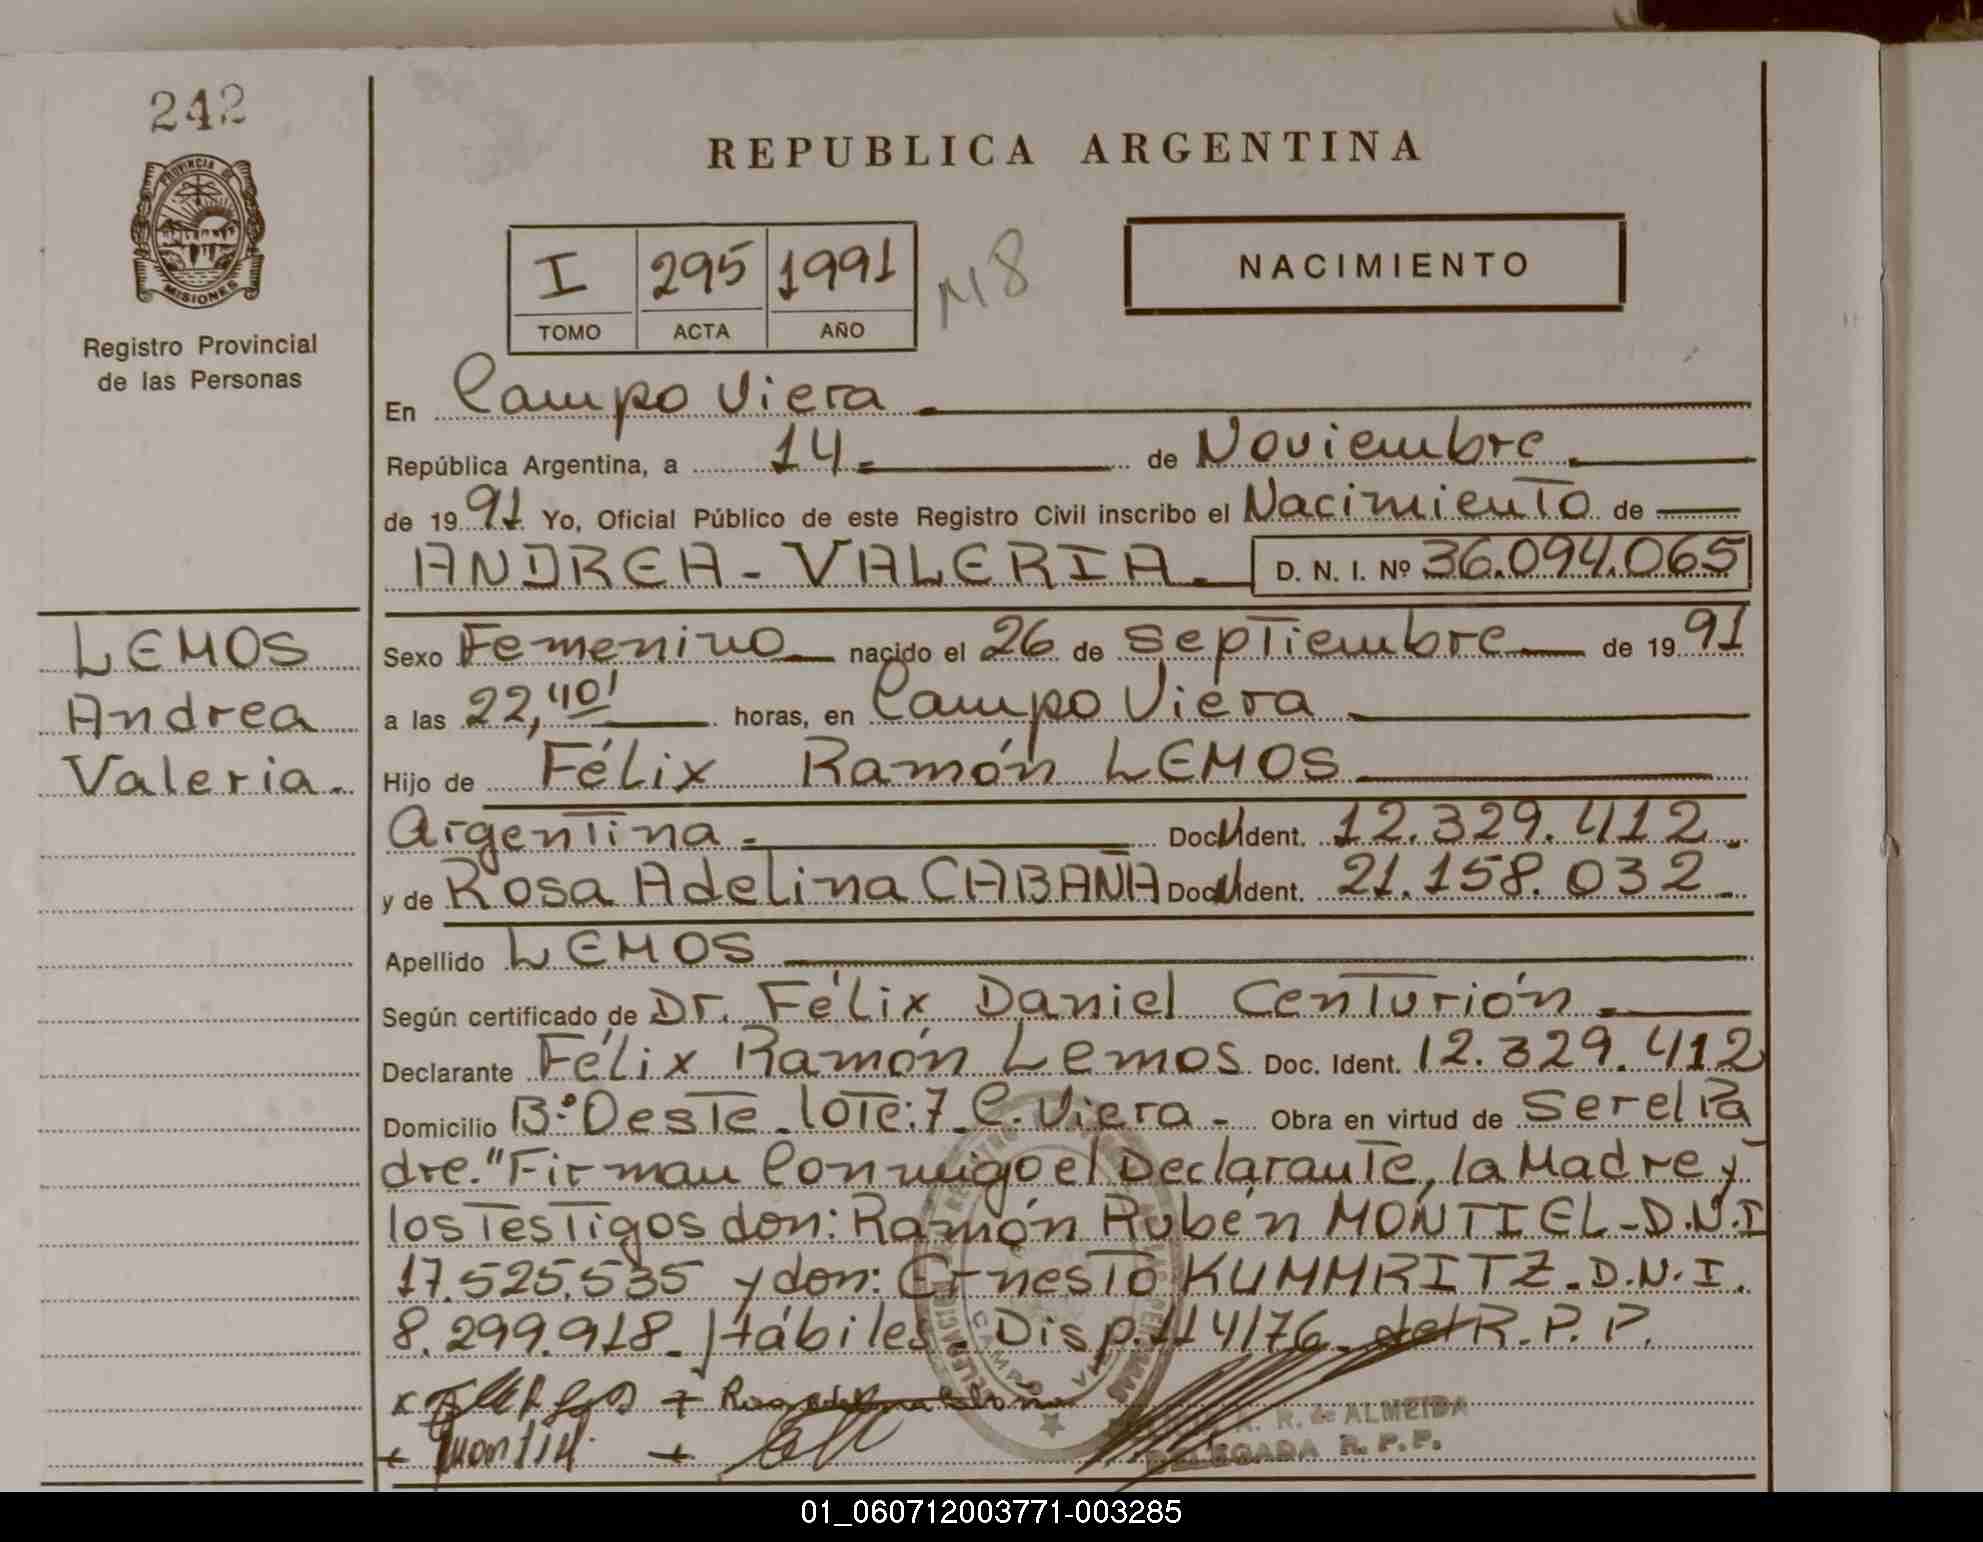 242
PROVINCIA DE
MISIONES
Registro Provincial
de las Personas
REPUBLICA ARGENTINA
I 295 1991
TOMO ACTA AÑO
M8
NACIMIENTO
En Campo Viera
República Argentina, a 14 de Noviembre
de 1991 Yo, Oficial Público de este Registro Civil inscribo el Nacimiento de
ANDREA - VALERIA. D. N. I. Nº 36.094.065
LEMOS
Andrea
Valeria.
Sexo Femenino nacido el 26 de septiembre de 1991
a las 22,40' horas, en Campo Viera
Hijo de Félix Ramón LEMOS
Argentina. Doc. Ident. 12.329.412
y de Rosa Adelina CABAÑA Doc. Ident. 21.158.032
Apellido LEMOS
Según certificado de Dr. Félix Daniel Centurión
Declarante Félix Ramón Lemos Doc. Ident. 12.329.412
Domicilio Bº Oeste lote: 7 C. Viera - Obra en virtud de ser el Pa
dre." Firman Conmigo el Declarante, la Madre y
los Testigos don: Ramón Rubén MONTIEL - D.N.I
17.525.535 y don: Ernesto KUMMRITZ - D.N.I.
8.299.918. Hábiles. Disp. 114/76 del R.P.P.
R. de ALMEIDA
DELEGADA R. P. P.
01_060712003771-003285